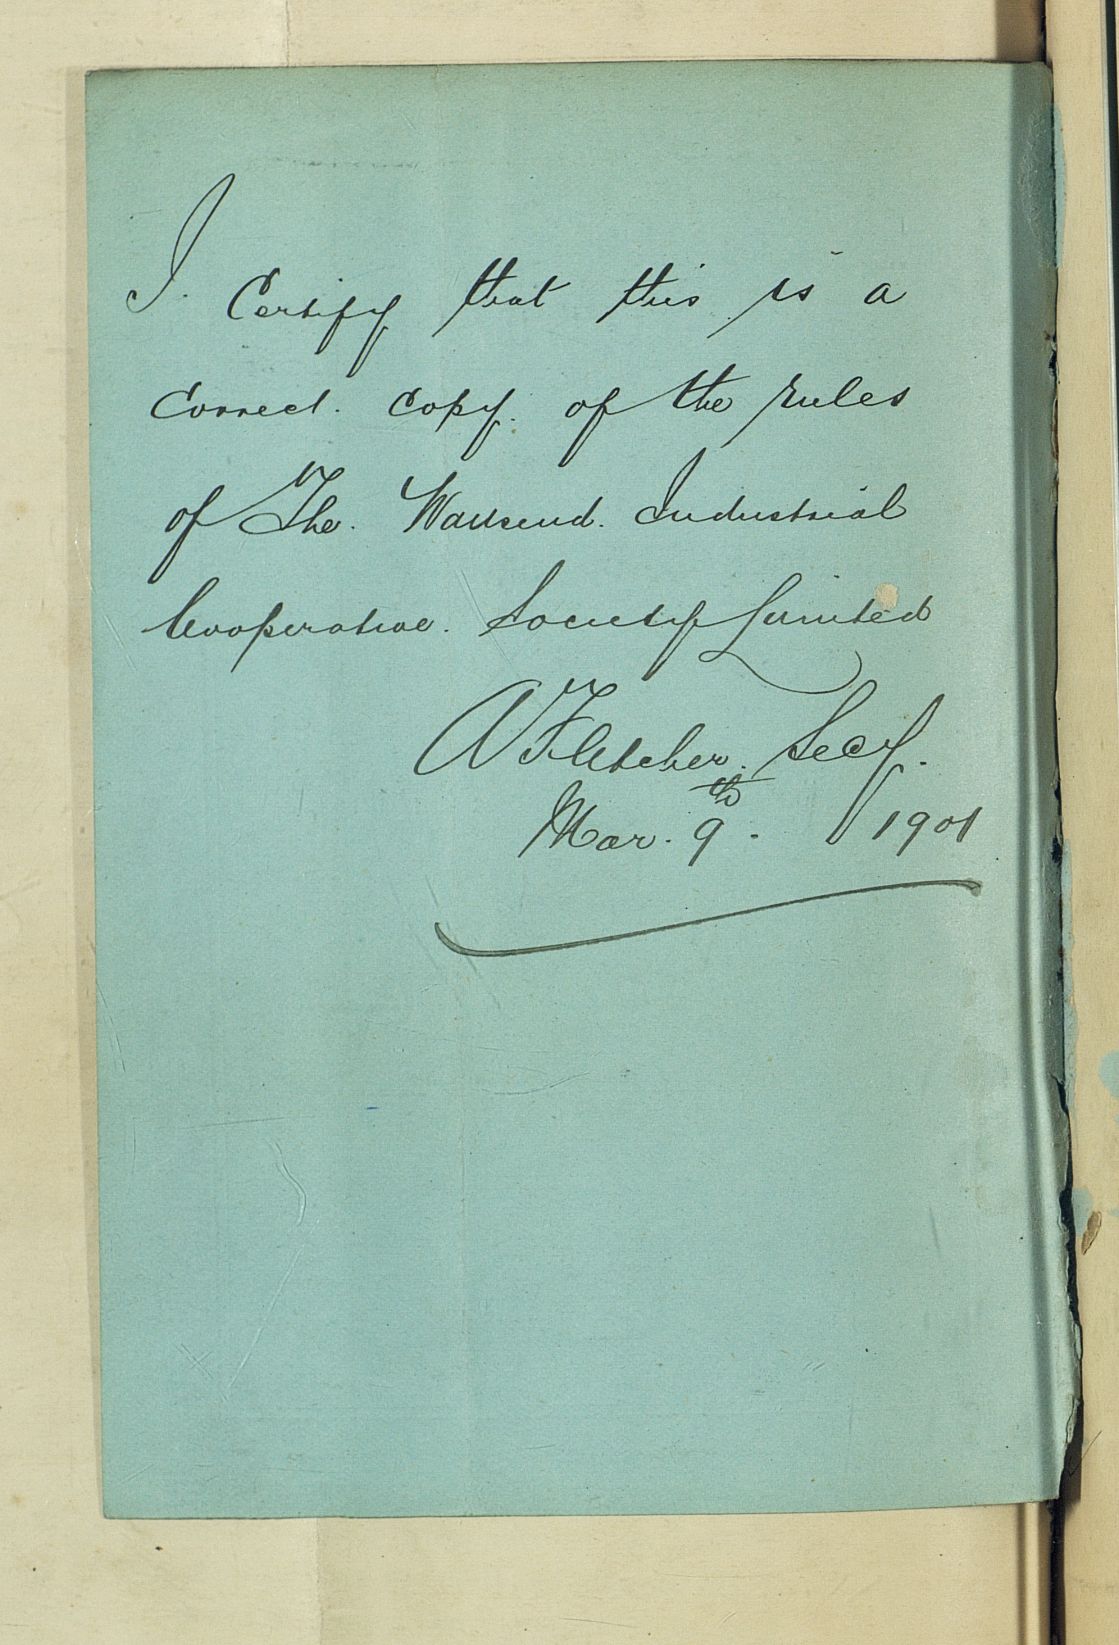 I Certify that this is a
Correct. Copy. of the rules
of The. Wallsend. Industrial
Cooperative. Society Limited
A Fletcher. Secy.
Mar. 9th. 1901